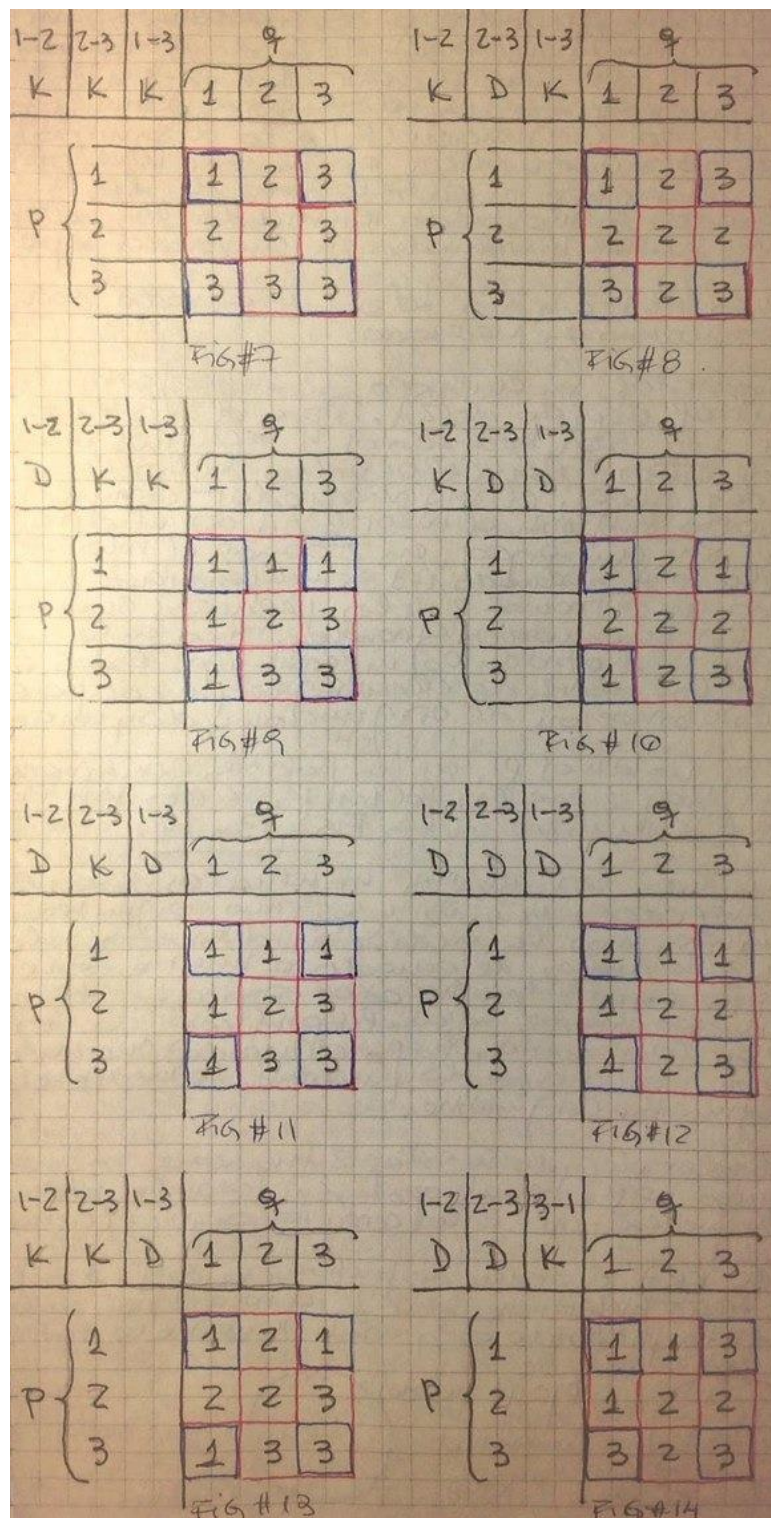 1-2 2-3 1-3 q
K K K 1 2 3
1 1 2 3
P 2 2 2 3
3 3 3 3
FIG#7
1-2 2-3 1-3 q
K D K 1 2 3
1 1 2 3
P 2 2 2 2
3 3 2 3
FIG#8.
1-2 2-3 1-3 q
D K K 1 2 3
1 1 1 1
P 2 1 2 3
3 1 3 3
FIG#9
1-2 2-3 1-3 q
K D D 1 2 3
1 1 2 1
P 2 2 2 2
3 1 2 3
FIG#10
1-2 2-3 1-3 q
D K D 1 2 3
1 1 1 1
P 2 1 2 3
3 1 3 3
FIG#11
1-2 2-3 1-3 q
D D D 1 2 3
1 1 1 1
P 2 1 2 2
3 1 2 3
FIG#12
1-2 2-3 1-3 q
K K D 1 2 3
1 1 2 1
P 2 2 2 3
3 1 3 3
FIG#13
1-2 2-3 3-1 q
D D K 1 2 3
1 1 1 3
P 2 1 2 2
3 3 2 3
FIG#14